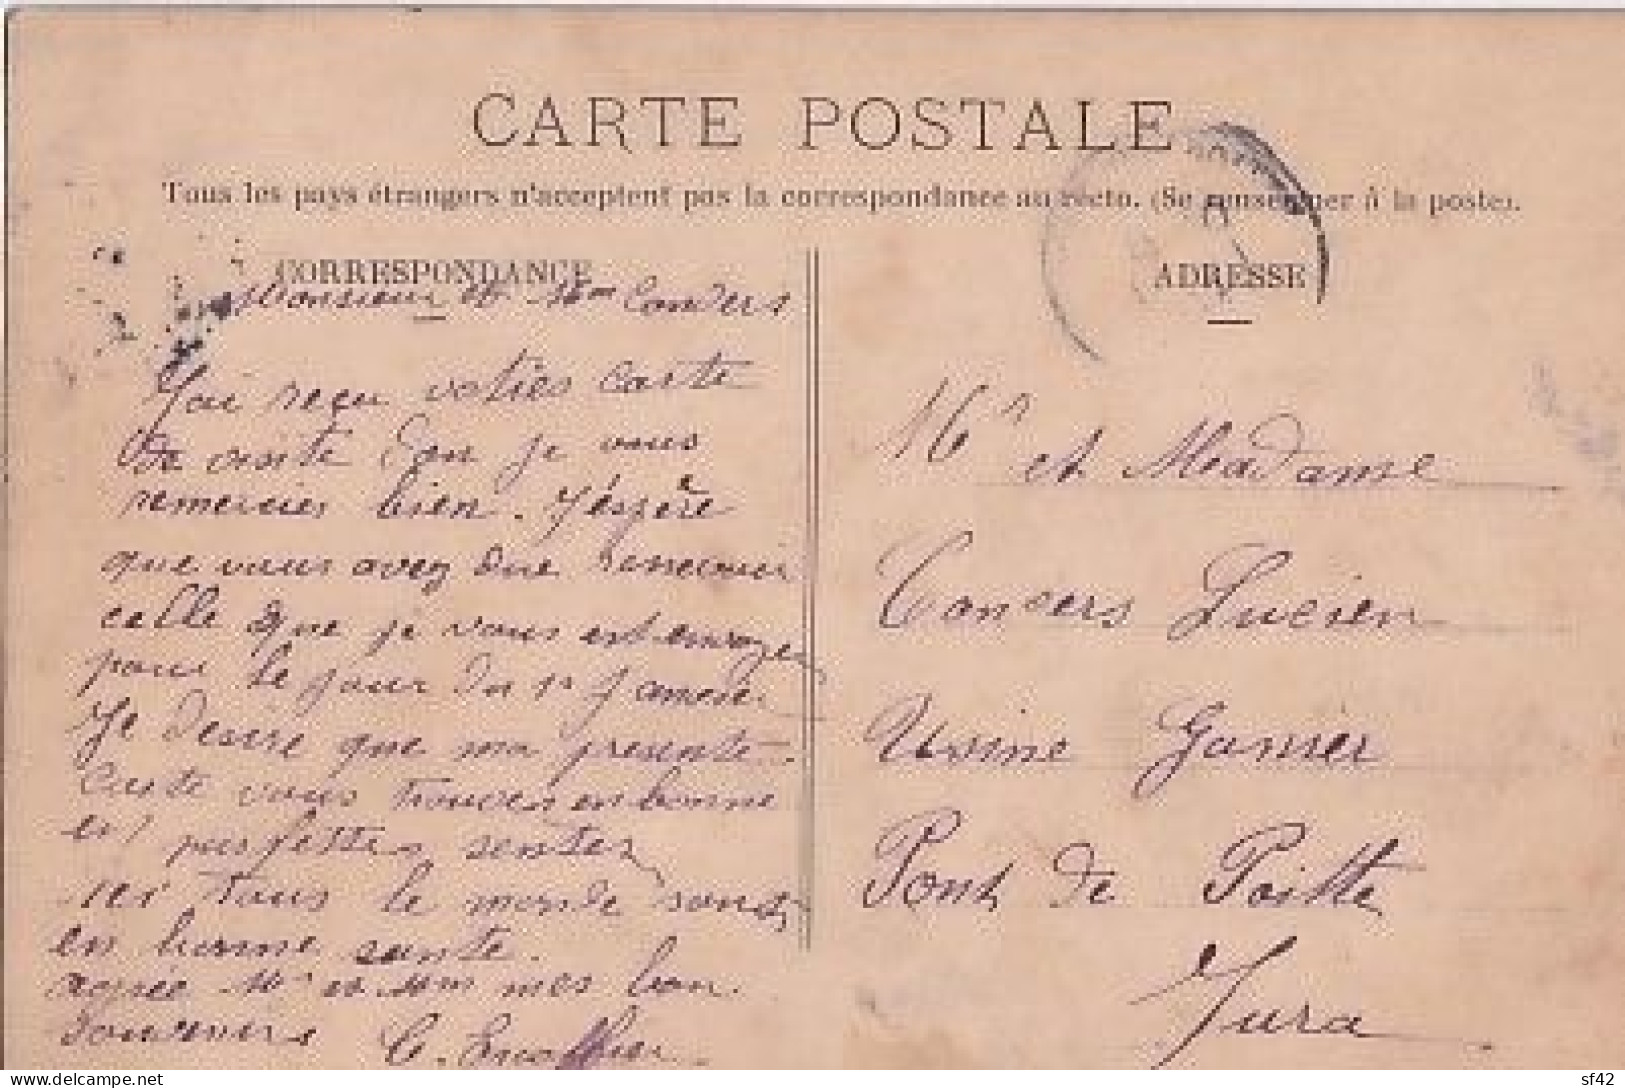 CARTE POSTALE
Tous les pays étrangers n'acceptent pas la correspondance au recto. (Se renseigner à la poste).
CORRESPONDANCE
Monsieur et Mme Convers
J'ai reçu votres carte
de visite don je vous
remercies bien. J'éspère
que vous avez due
celle que je vous est envoyer
pour le jour du 1r Janvier
Je desire que ma presente
carte vous trouves en bonne
et parfettes santes
ici tous le monde sont
en bonne sante.
agrée Mr et Mme mes bon
souvenirs
ADRESSE
Mr et Madame
Convers Lucien
Usine Garnier
Pont de Poitte
Jura
Delcampe.net
sf42